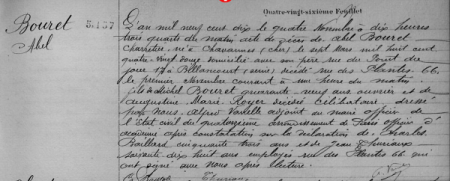 Quatre-vingt-sixième Feuillet
Bouret
Abel
5137
L'an mil neuf cent dix le quatre Novembre à dix heures
trois quarts du matin acte de décès de Abel Bouret
charretier, né à Chavannes (Cher) le sept Mars mil huit cent
quatre-vingt douze domicilié avec son père rue du Point du
jour 17 à Billancourt (Seine) décédé rue des Plantes 66
le premier Novembre courant à une heure du matin
fils de Michel Bouret quarante neuf ans ouvrier et de
Augustine Marie Royer décédée Célibataire dressé
par Nous Alfred adjoint au maire officier de
l'Etat civil du quatorzième arrondissement de Paris officier d'
académie après constatation sur la déclaration de Charles
Baillard cinquante trois ans et de Jean Thuriaux
soixante dix huit ans employés rue des Plantes 66 qui
ont signé avec Nous après lecture
Thuriaux